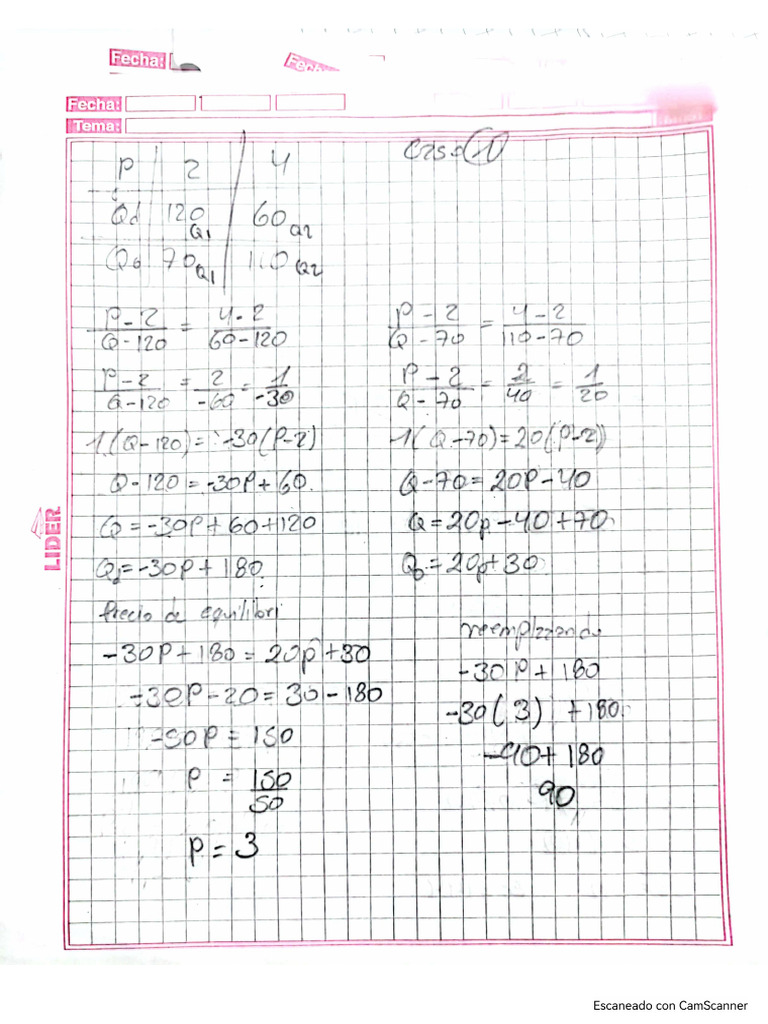 Fecha:
Fecha:
Fecha:
Tema:
P | 2 | 4
Qd | 120 Q1 | 60 Q2
Qo | 70 Q1 | 110 Q2
P-2/Q-120 = 4-2/60-120
P-2/Q-120 = 2/-60 = 1/-30
1(Q-120) = -30(P-2)
Q-120 = -30P+60
Q = -30P+60+120
Qd = -30P+180
P-2/Q-70 = 4-2/110-70
P-2/Q-70 = 2/40 = 1/20
1(Q-70) = 20(P-2)
Q-70 = 20P-40
Q = 20p-40+70
Qo = 20p+30
Precio de equilibri
-30P+180 = 20p+30
-30P-20 = 30-180
-50P = 150
P = 150/50
P = 3
reemplazando
-30P+180
-30(3)+180
-90+180
90
LIDER
Escaneado con CamScanner